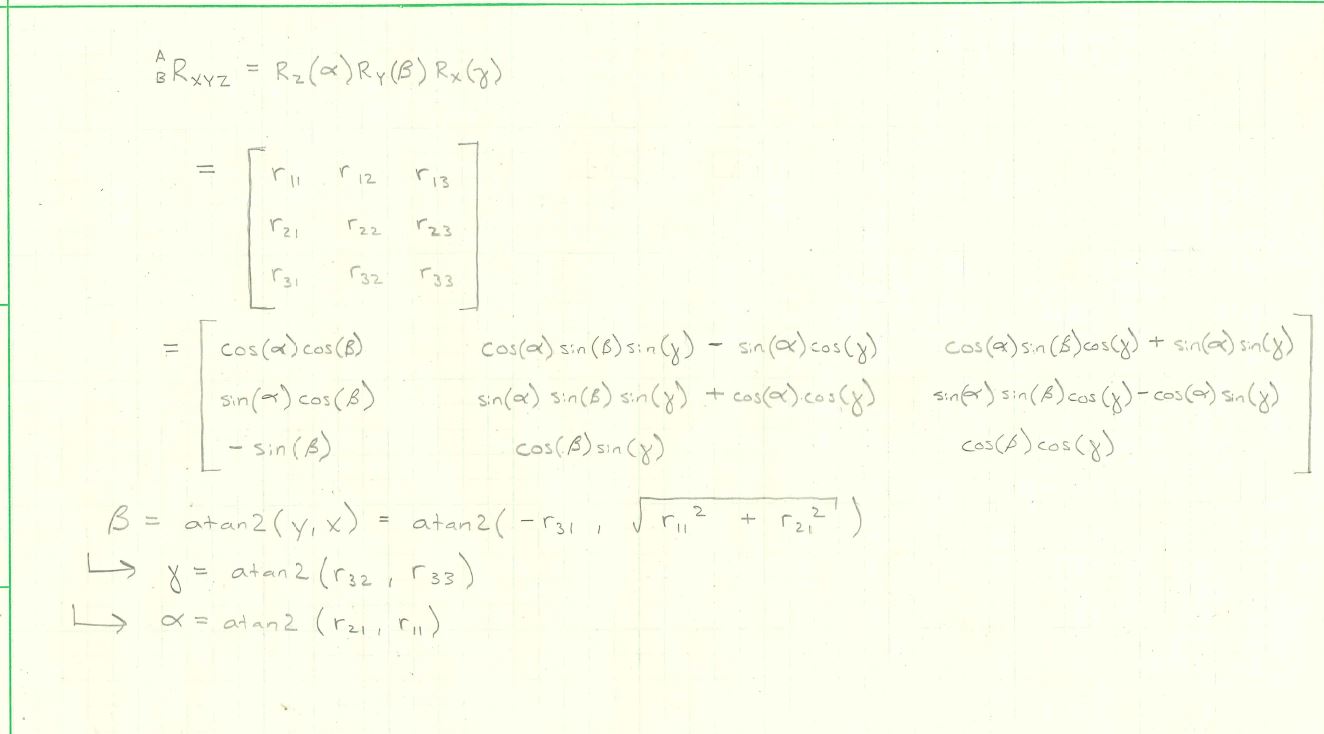 ᴬ_B R_XYZ = R_Z(α) R_Y(β) R_X(γ)
= [ r₁₁ r₁₂ r₁₃
r₂₁ r₂₂ r₂₃
r₃₁ r₃₂ r₃₃ ]
= [ cos(α)cos(β) cos(α)sin(β)sin(γ) − sin(α)cos(γ) cos(α)sin(β)cos(γ) + sin(α)sin(γ)
sin(α)cos(β) sin(α)sin(β)sin(γ) + cos(α)cos(γ) sin(α)sin(β)cos(γ) − cos(α)sin(γ)
−sin(β) cos(β)sin(γ) cos(β)cos(γ) ]
β = atan2(y, x) = atan2(−r₃₁, √(r₁₁² + r₂₁²))
↳ γ = atan2(r₃₂, r₃₃)
↳ α = atan2(r₂₁, r₁₁)